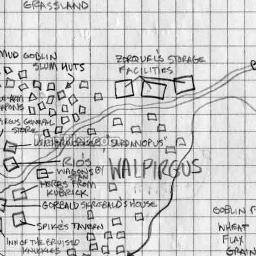 GRASSLAND
MUD GOBLIN
SLUM HUTS
ZORQUEL'S STORAGE
FACILITIES
GENERAL
STORE
"SARDANOPUS"
RIO'S
WAGONS BY
STAN
WALPIRGUS
HERBS FROM
KUBRICK
GORBALD SKREBALD'S HOUSE
SPIKE'S TAVERN
INK OF THE BRUISED
KNUCKLES
GOBLIN F
WHEAT
FLAX
GRAIN